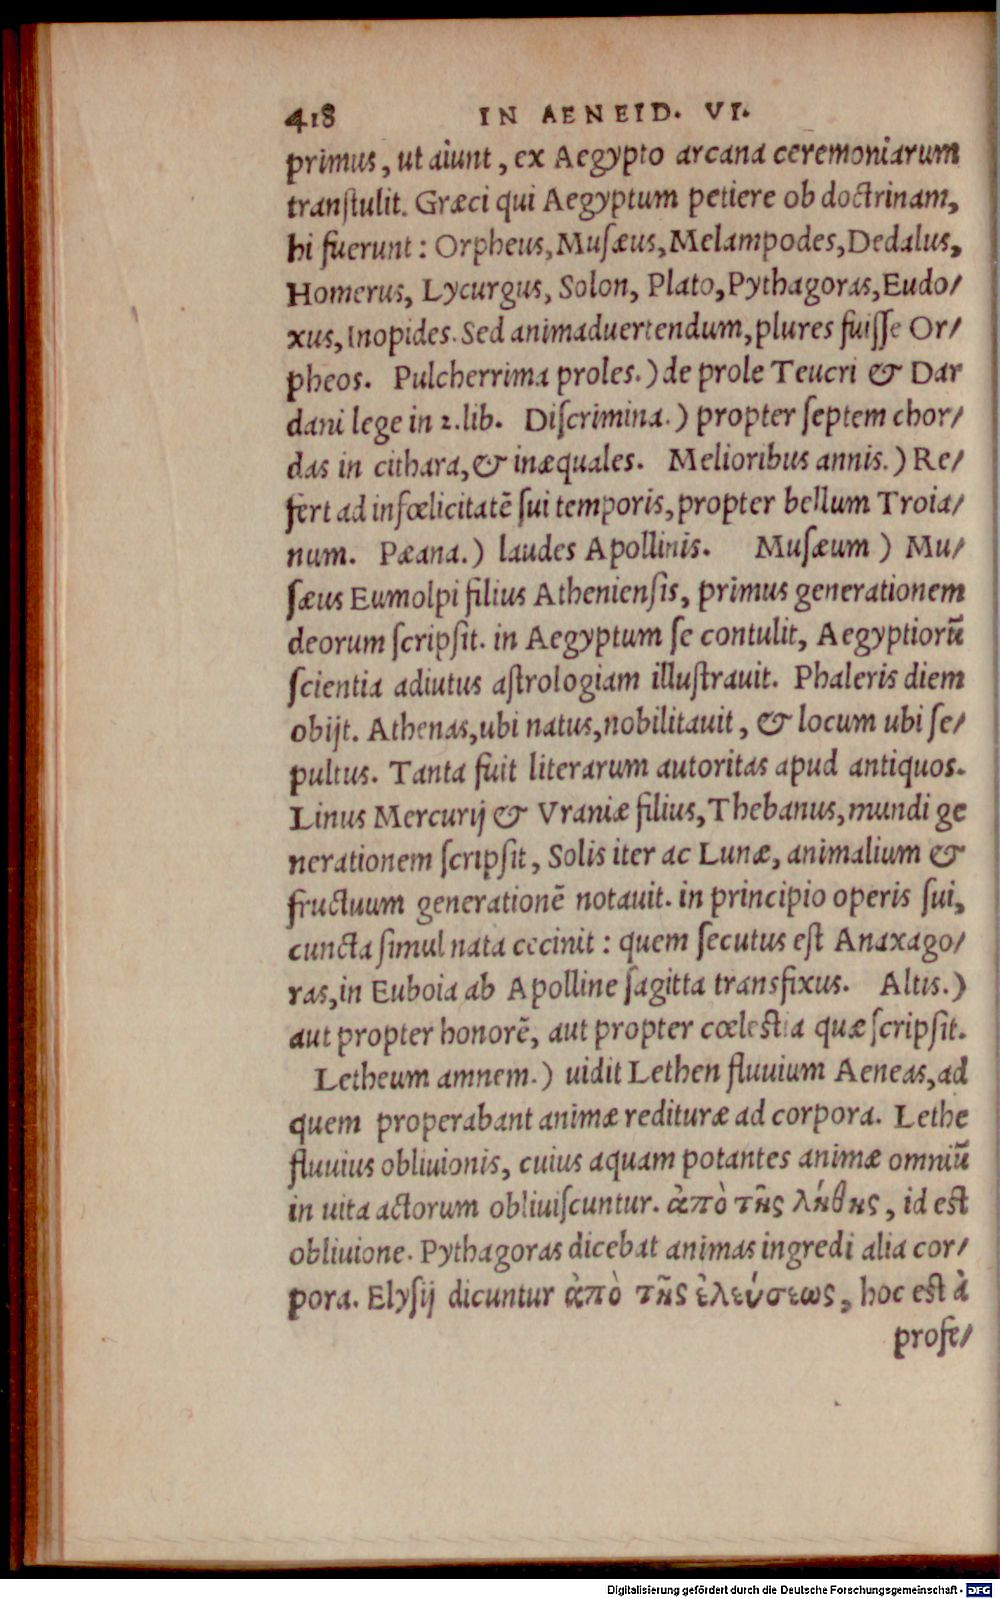 418 IN AENEID. VI.
primus, ut aiunt, ex Aegypto arcana ceremoniarum
transtulit. Græci qui Aegyptum petiere ob doctrinam,
hi fuerunt: Orpheus, Musæus, Melampodes, Dedalus,
Homerus, Lycurgus, Solon, Plato, Pythagoras, Eudo/
xus, Inopides. Sed animaduertendum, plures fuisse Or/
pheos. Pulcherrima proles.) de prole Teucri & Dar
dani lege in 2. lib. Discrimina.) propter septem chor/
das in cithara, & inæquales. Melioribus annis.) Re/
fert ad infœlicitatē sui temporis, propter bellum Troia/
num. Pæana.) laudes Apollinis. Musæum ) Mu/
sæus Eumolpi filius Atheniensis, primus generationem
deorum scripsit. in Aegyptum se contulit, Aegyptiorū
scientia adiutus astrologiam illustrauit. Phaleris diem
obijt. Athenas, ubi natus, nobilitauit, & locum ubi se/
pultus. Tanta fuit literarum autoritas apud antiquos.
Linus Mercurij & Vraniæ filius, Thebanus, mundi ge
nerationem scripsit, Solis iter ac Lunæ, animalium &
fructuum generationē notauit. in principio operis sui,
cuncta simul nata cecinit: quem secutus est Anaxago/
ras, in Euboia ab Apolline sagitta transfixus. Altis.)
aut propter honorē, aut propter cœlestia quæ scripsit.
Letheum amnem.) uidit Lethen fluuium Aeneas, ad
quem properabant animæ redituræ ad corpora. Lethe
fluuius obliuionis, cuius aquam potantes animæ omniū
in uita actorum obliuiscuntur. ἀπὸ τῆς λήθης, id est
obliuione. Pythagoras dicebat animas ingredi alia cor/
pora. Elysij dicuntur ἀπὸ τῆς ἐλεύσεως, hoc est à
profe/
Digitalisierung gefördert durch die Deutsche Forschungsgemeinschaft - DFG